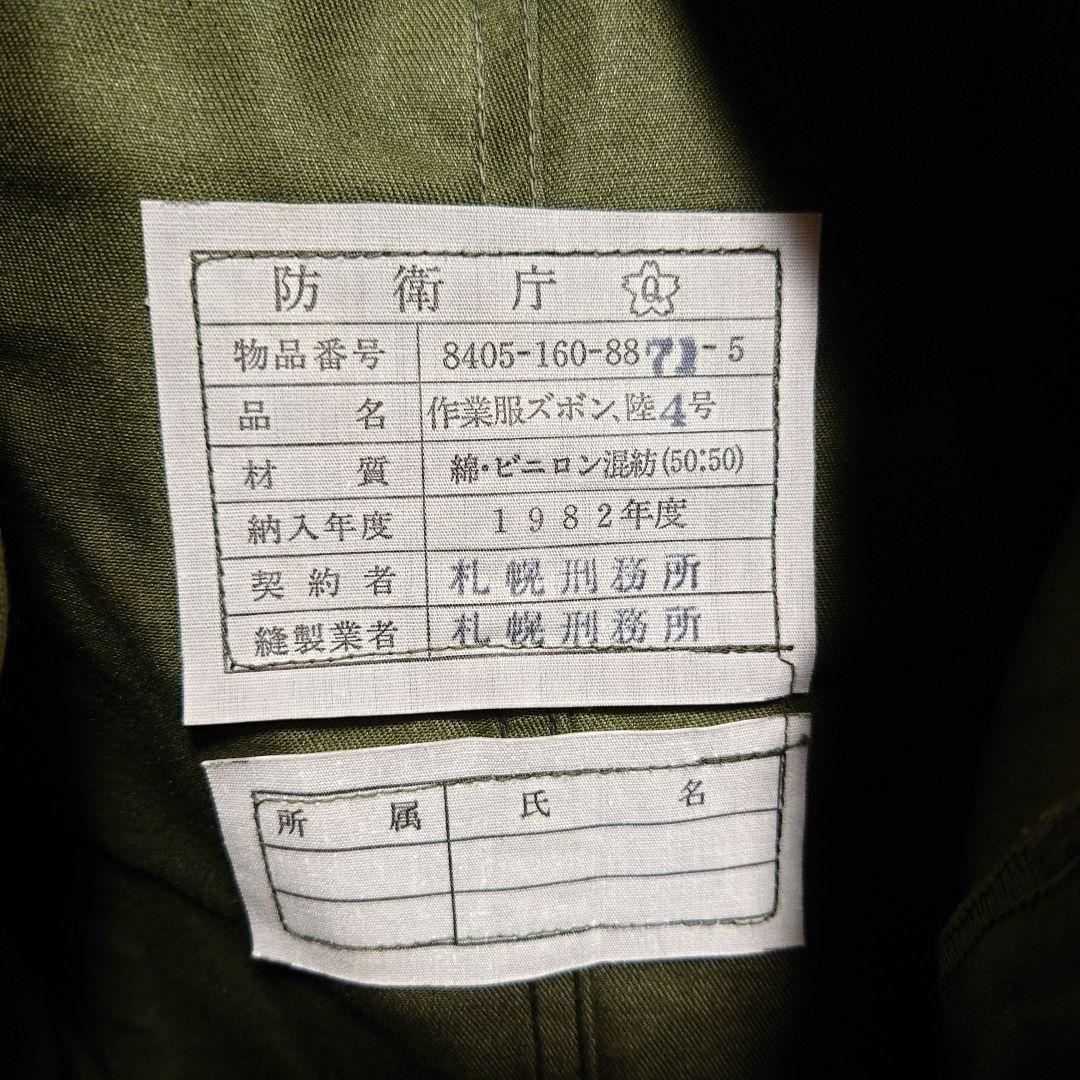 防衛庁 Q
物品番号 8405-160-8871-5
品名 作業服ズボン、陸4号
材質 綿・ビニロン混紡(50:50)
納入年度 1982年度
契約者 札幌刑務所
縫製業者 札幌刑務所
所属 氏名